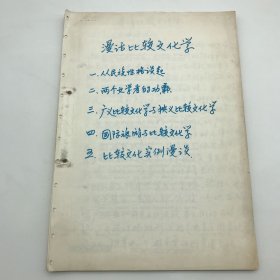 漫话比较文化学
一.从民族性格谈起
二.两个大学者的功勋
三.广义比较文化学与狭义比较文化学
四.国际旅游与比较文化学
五.比较文化实例漫谈